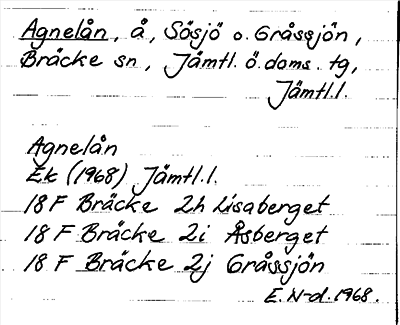 Agnelån, å, Sösjö o. Gråssjön,
Bräcke sn, Jämtl. ö. doms. tg,
Jämtl.l.
Agnelån
Ek (1968) Jämtl.l.
18 F Bräcke 2h Lisaberget
18 F Bräcke 2i Åsberget
18 F Bräcke 2j Gråssjön
E. N-d. 1968.